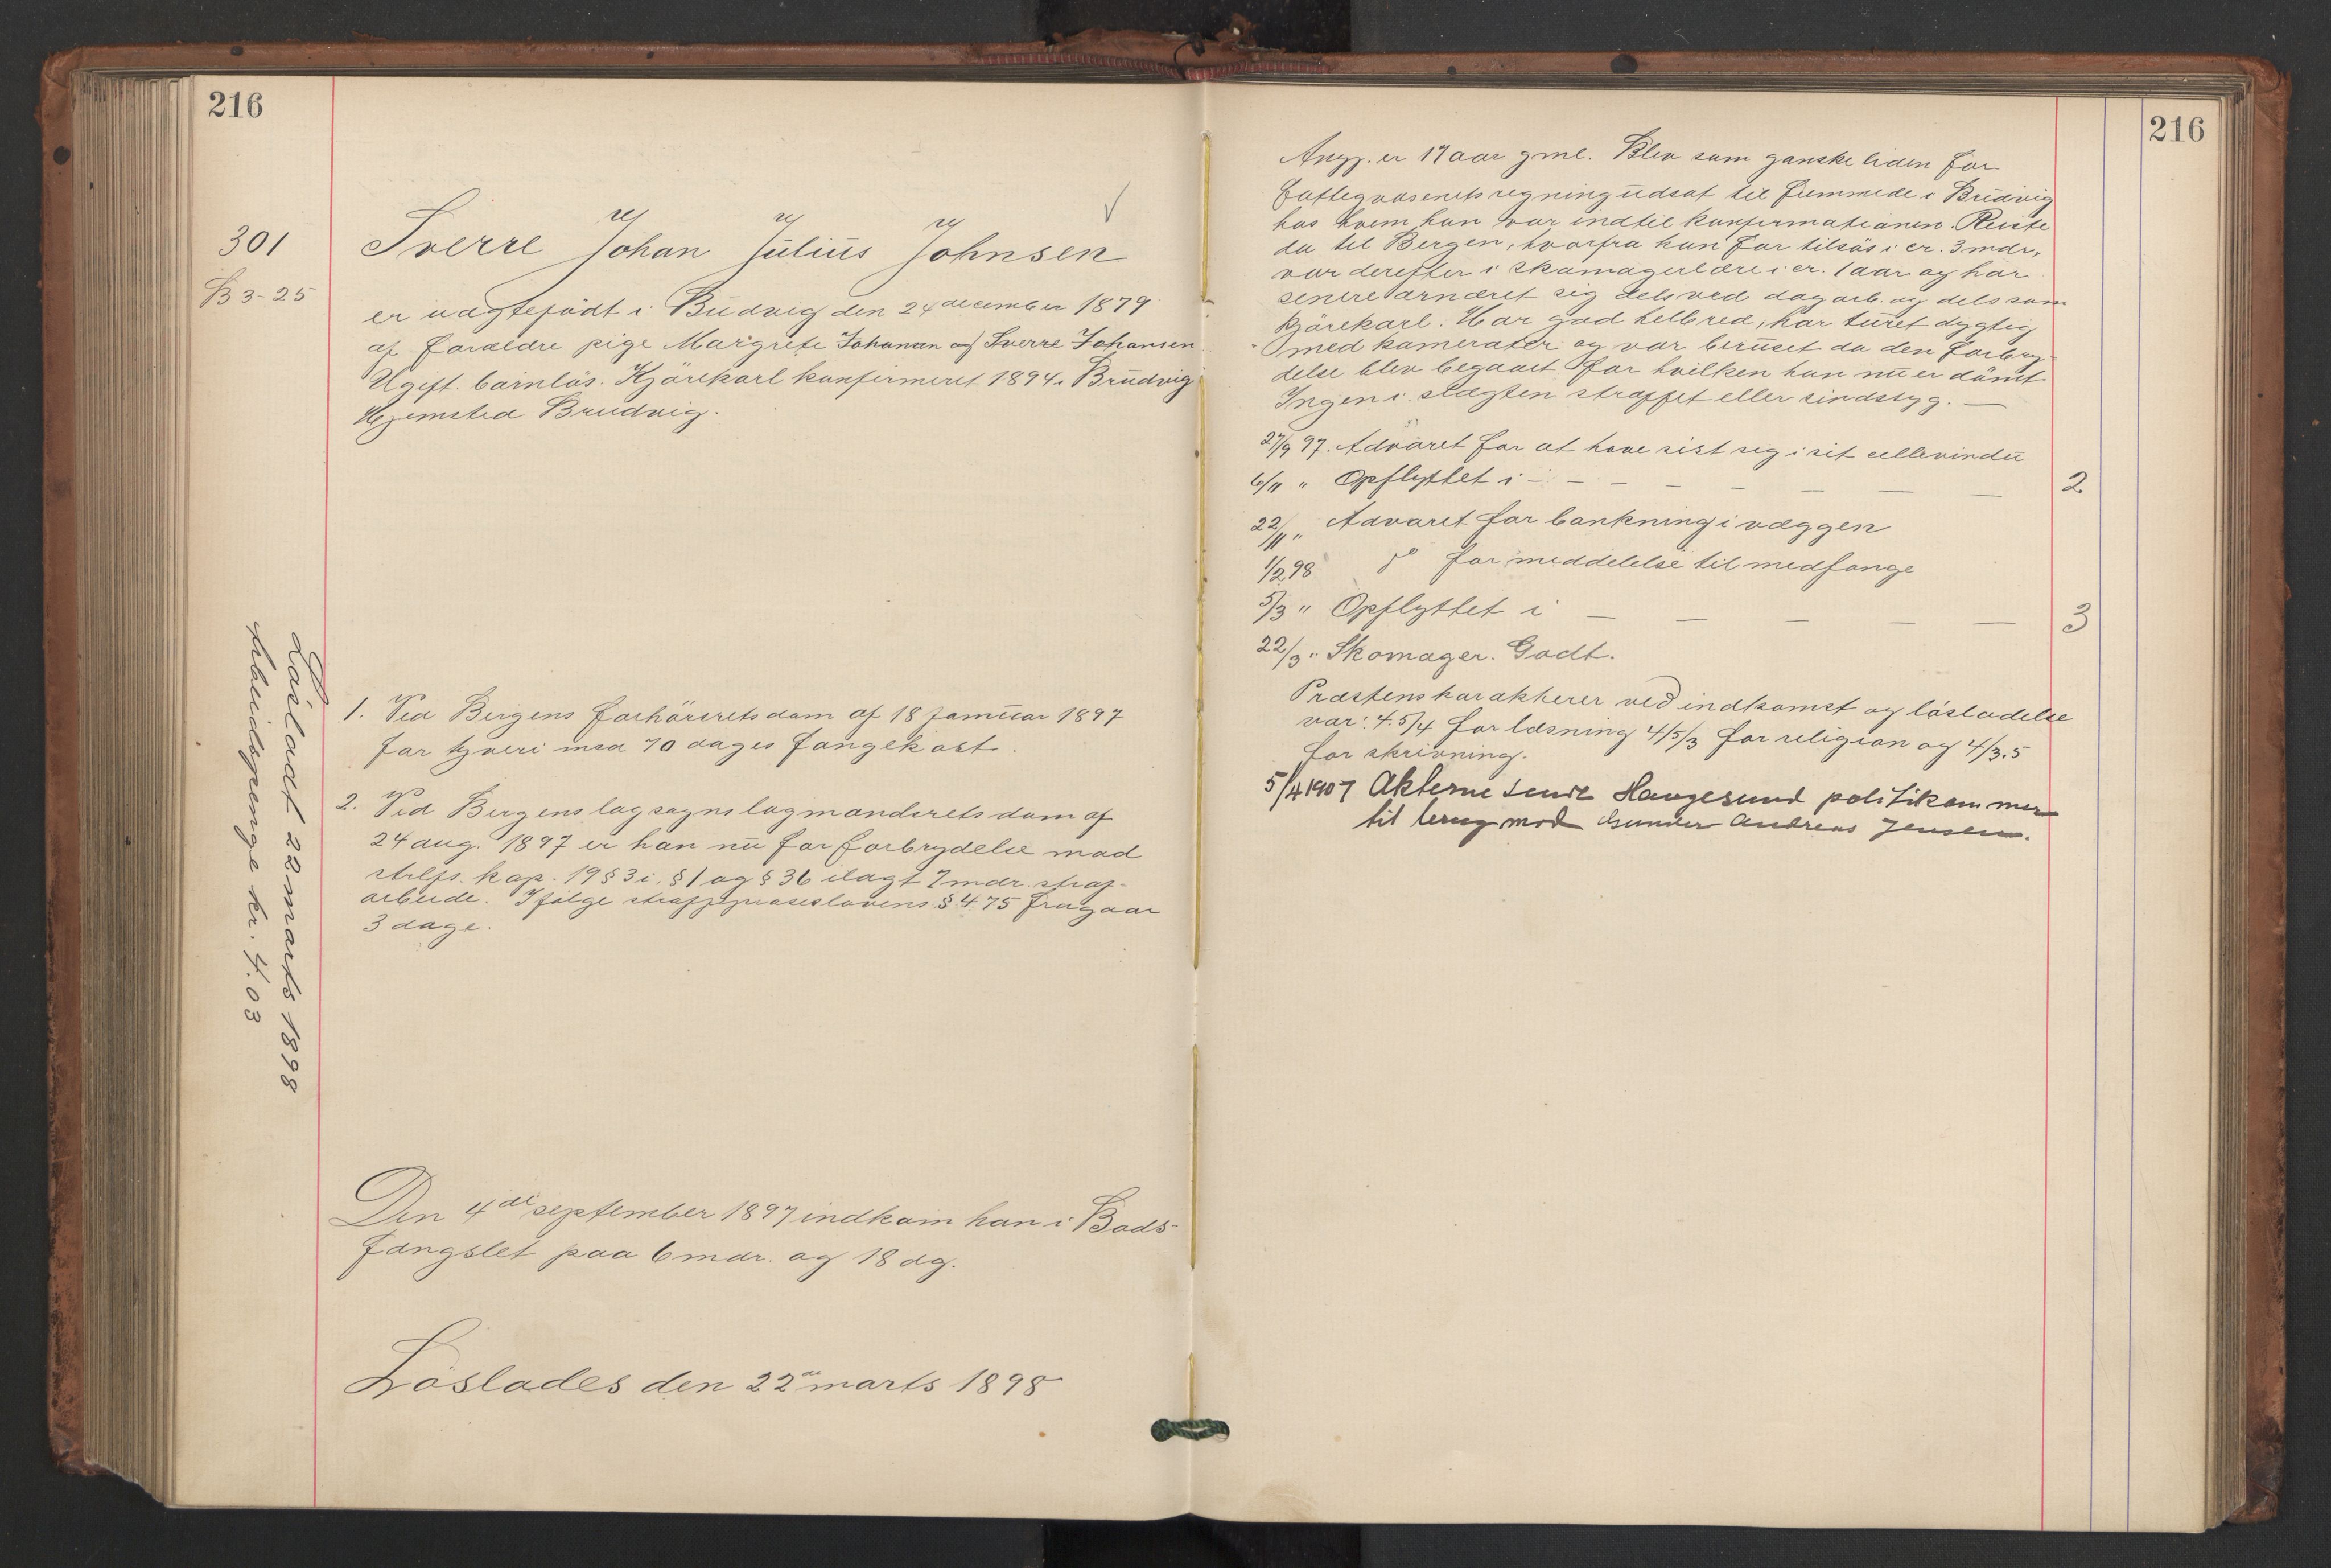 216
301
B 3-25
Sverre Johan Julius Johnsen
er uægtefödt i Budvig den 24 december 1879
af foreldre pige Margrete Johansen og Sverre Johansen
Ugift. barnlös. Kjörekarl konfirmeret 1894 i Brudvig
Hjemsted Brudvig.
Lösladt 22 marts 1898
Arbeidspenge kr. 4.03
1. Ved Bergens forhörsretsdom af 18 januar 1897
for tyveri med 10 dages fangekost.
2. Ved Bergens lagsogns lagmandsrets dom af
24 aug. 1897 er han nu for forbrydelse mod
strlfs. kap. 19 § 3 i. § 1 og § 36 ilagt 7 mdr. straf-
arbeide. Ifölge straffeproseslovens § 475 fragaar
3 dage.
Den 4de september 1897 indkom han i Bods-
fængslet paa 6 mdr. og 18 dg.
Löslades den 22de marts 1898
216
Angj. er 17 aar gml. Blev som ganske liden for
fattigvæsenets regning udsat til fremmede i Brudvig
hos hvem han var indtil konfirmationen. Reiste
da til Bergen, hvorfra han for tilsös i cr. 3 mdr,
var derefter i skomagerlære i cr. 1 aar og har
senere ernæret sig dels ved dagarb. og dels som
kjörekarl. Har god helbred, har turet dygtig
med kamerater og var beruset da den forbry-
delse blev begaaet for hvilken han nu er dömt
Ingen i slægten straffet eller sindssyg. —
27/9 97. Advaret for at have vist sig i sit cellevindu
6/11 " Opflyttet i — — — — — — — 2
22/11 " Advaret for bankning i væggen
1/2 98 do for meddelelse til medfange
5/3 " Opflyttet i — — — — — 3
22/3 " Skomager. Godt.
Præstens karakterer ved indkomst og lösladelse
var: 4.5/4 for læsning 4/5/3 for religion og 4/3.5
for skrivning.
5/4 1907 Akterne sendt Haugesund politikammer
til brug mod Gunder Andreas Jensen.